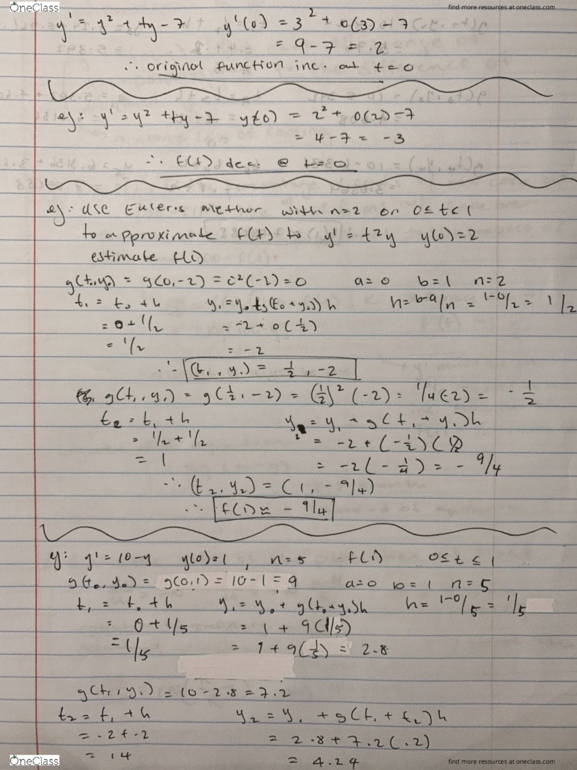 OneClass
find more resources at oneclass.com
y' = y² + ty - 7   y'(0) = 3² + 0(3) - 7
= 9 - 7 = 2
∴ original function inc. at t=0
eg: y' = y² + ty - 7   y(0) = 2² + 0(2) - 7
= 4 - 7 = -3
∴ f(t) dec. @ t=0
eg: use Euler's method with n=2 on 0≤t≤1
to approximate f(t) to y' = t²y   y(0)=2
estimate f(1)
g(t₀,y₀) = g(0,-2) = 0²(-2) = 0   a=0   b=1   n=2
t₁ = t₀ + h   y₁ = y₀ + g(t₀+y₀)h   h = b-a/n = 1-0/2 = 1/2
= 0 + 1/2   = -2 + 0(½)
= 1/2   = -2
∴ (t₁, y₁) = ½, -2
g(t₁, y₁) = g(½, -2) = (½)²(-2) = 1/4(-2) = -½
t₂ = t₁ + h   y₂ = y₁ + g(t₁+y₁)h
= 1/2 + 1/2   = -2 + (-½)(½)
= 1   = -2(-¼) = -9/4
∴ (t₂, y₂) = (1, -9/4)
∴ f(1) ≈ -9/4
y' = 10-y   y(0)=1, n=5   f(1)   0≤t≤1
g(t₀, y₀) = g(0,1) = 10-1 = 9   a=0   b=1   n=5
t₁ = t₀ + h   y₁ = y₀ + g(t₀+y₀)h   h = 1-0/5 = 1/5
= 0 + 1/5   = 1 + 9(1/5)
= 1/5   = 1 + 9(⅕) = 2.8
g(t₁, y₁) = 10 - 2.8 = 7.2
t₂ = t₁ + h   y₂ = y₁ + g(t₁ + t₂)h
= .2 + .2   = 2.8 + 7.2(.2)
= .4   = 4.24
OneClass
find more resources at oneclass.com